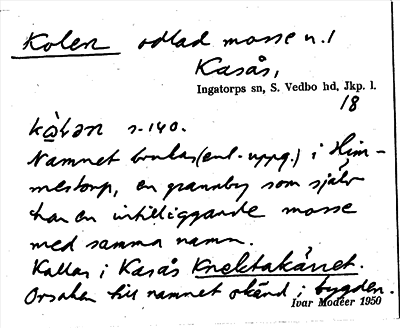 Kolen odlad mosse n. 1
Kasås,
Ingatorps sn, S. Vedbo hd, Jkp. l.
18
s. 140.
Namnet brukas (enl. uppg.) i Him-
mestorp, en grannby som själv
har en intilliggande mosse
med samma namn.
Kallas i Kasås Knektakärret.
Orsaken till namnet okänd i bygden.
Ivar Modéer 1950